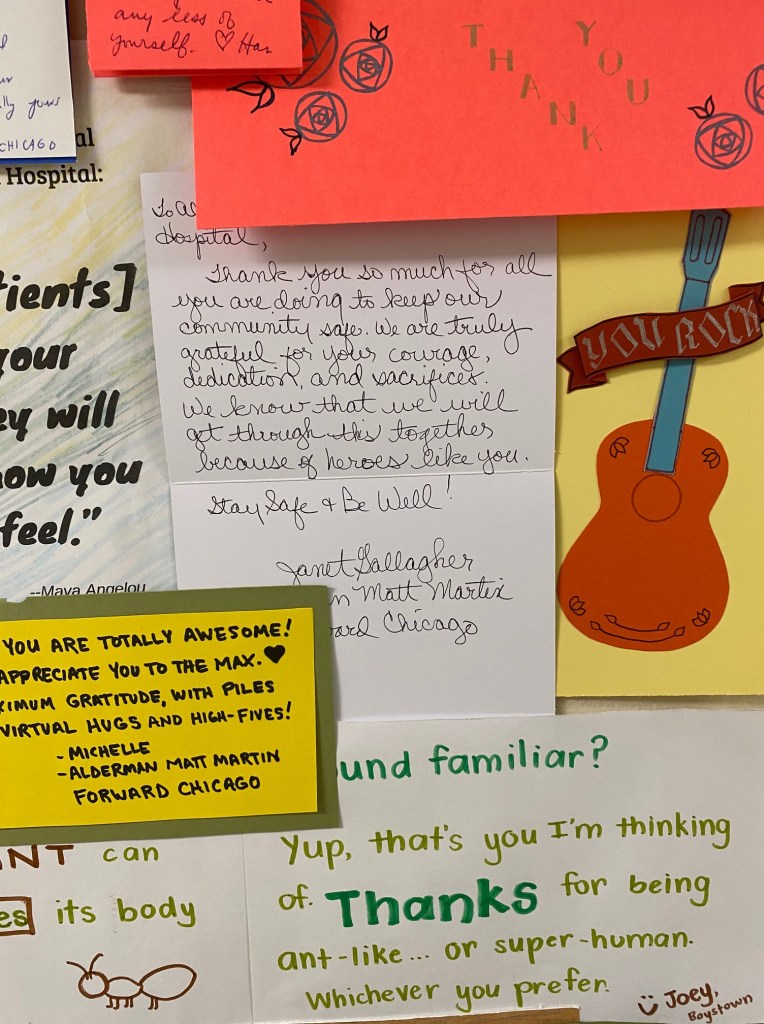 any less of
yourself. ♡ Han
lly yours
CHICAGO
THANK
YOU
al
Hospital:
tients]
your
ey will
how you
feel."
--Maya Angelou
To
Hospital,
Thank you so much for all
you are doing to keep our
community safe. We are truly
grateful for your courage,
dedication, and sacrifices.
We know that we will
get through this together
because of heroes like you.
Stay Safe + Be Well!
Janet Gallagher
n Matt Martin
ard Chicago
YOU ROCK
YOU ARE TOTALLY AWESOME!
APPRECIATE YOU TO THE MAX. ♥
XIMUM GRATITUDE, WITH PILES
VIRTUAL HUGS AND HIGH-FIVES!
- MICHELLE
- ALDERMAN MATT MARTIN
FORWARD CHICAGO
ANT can
es its body
ound familiar?
Yup, that's you I'm thinking
of. Thanks for being
ant-like... or super-human.
Whichever you prefer.
Joey,
Boystown